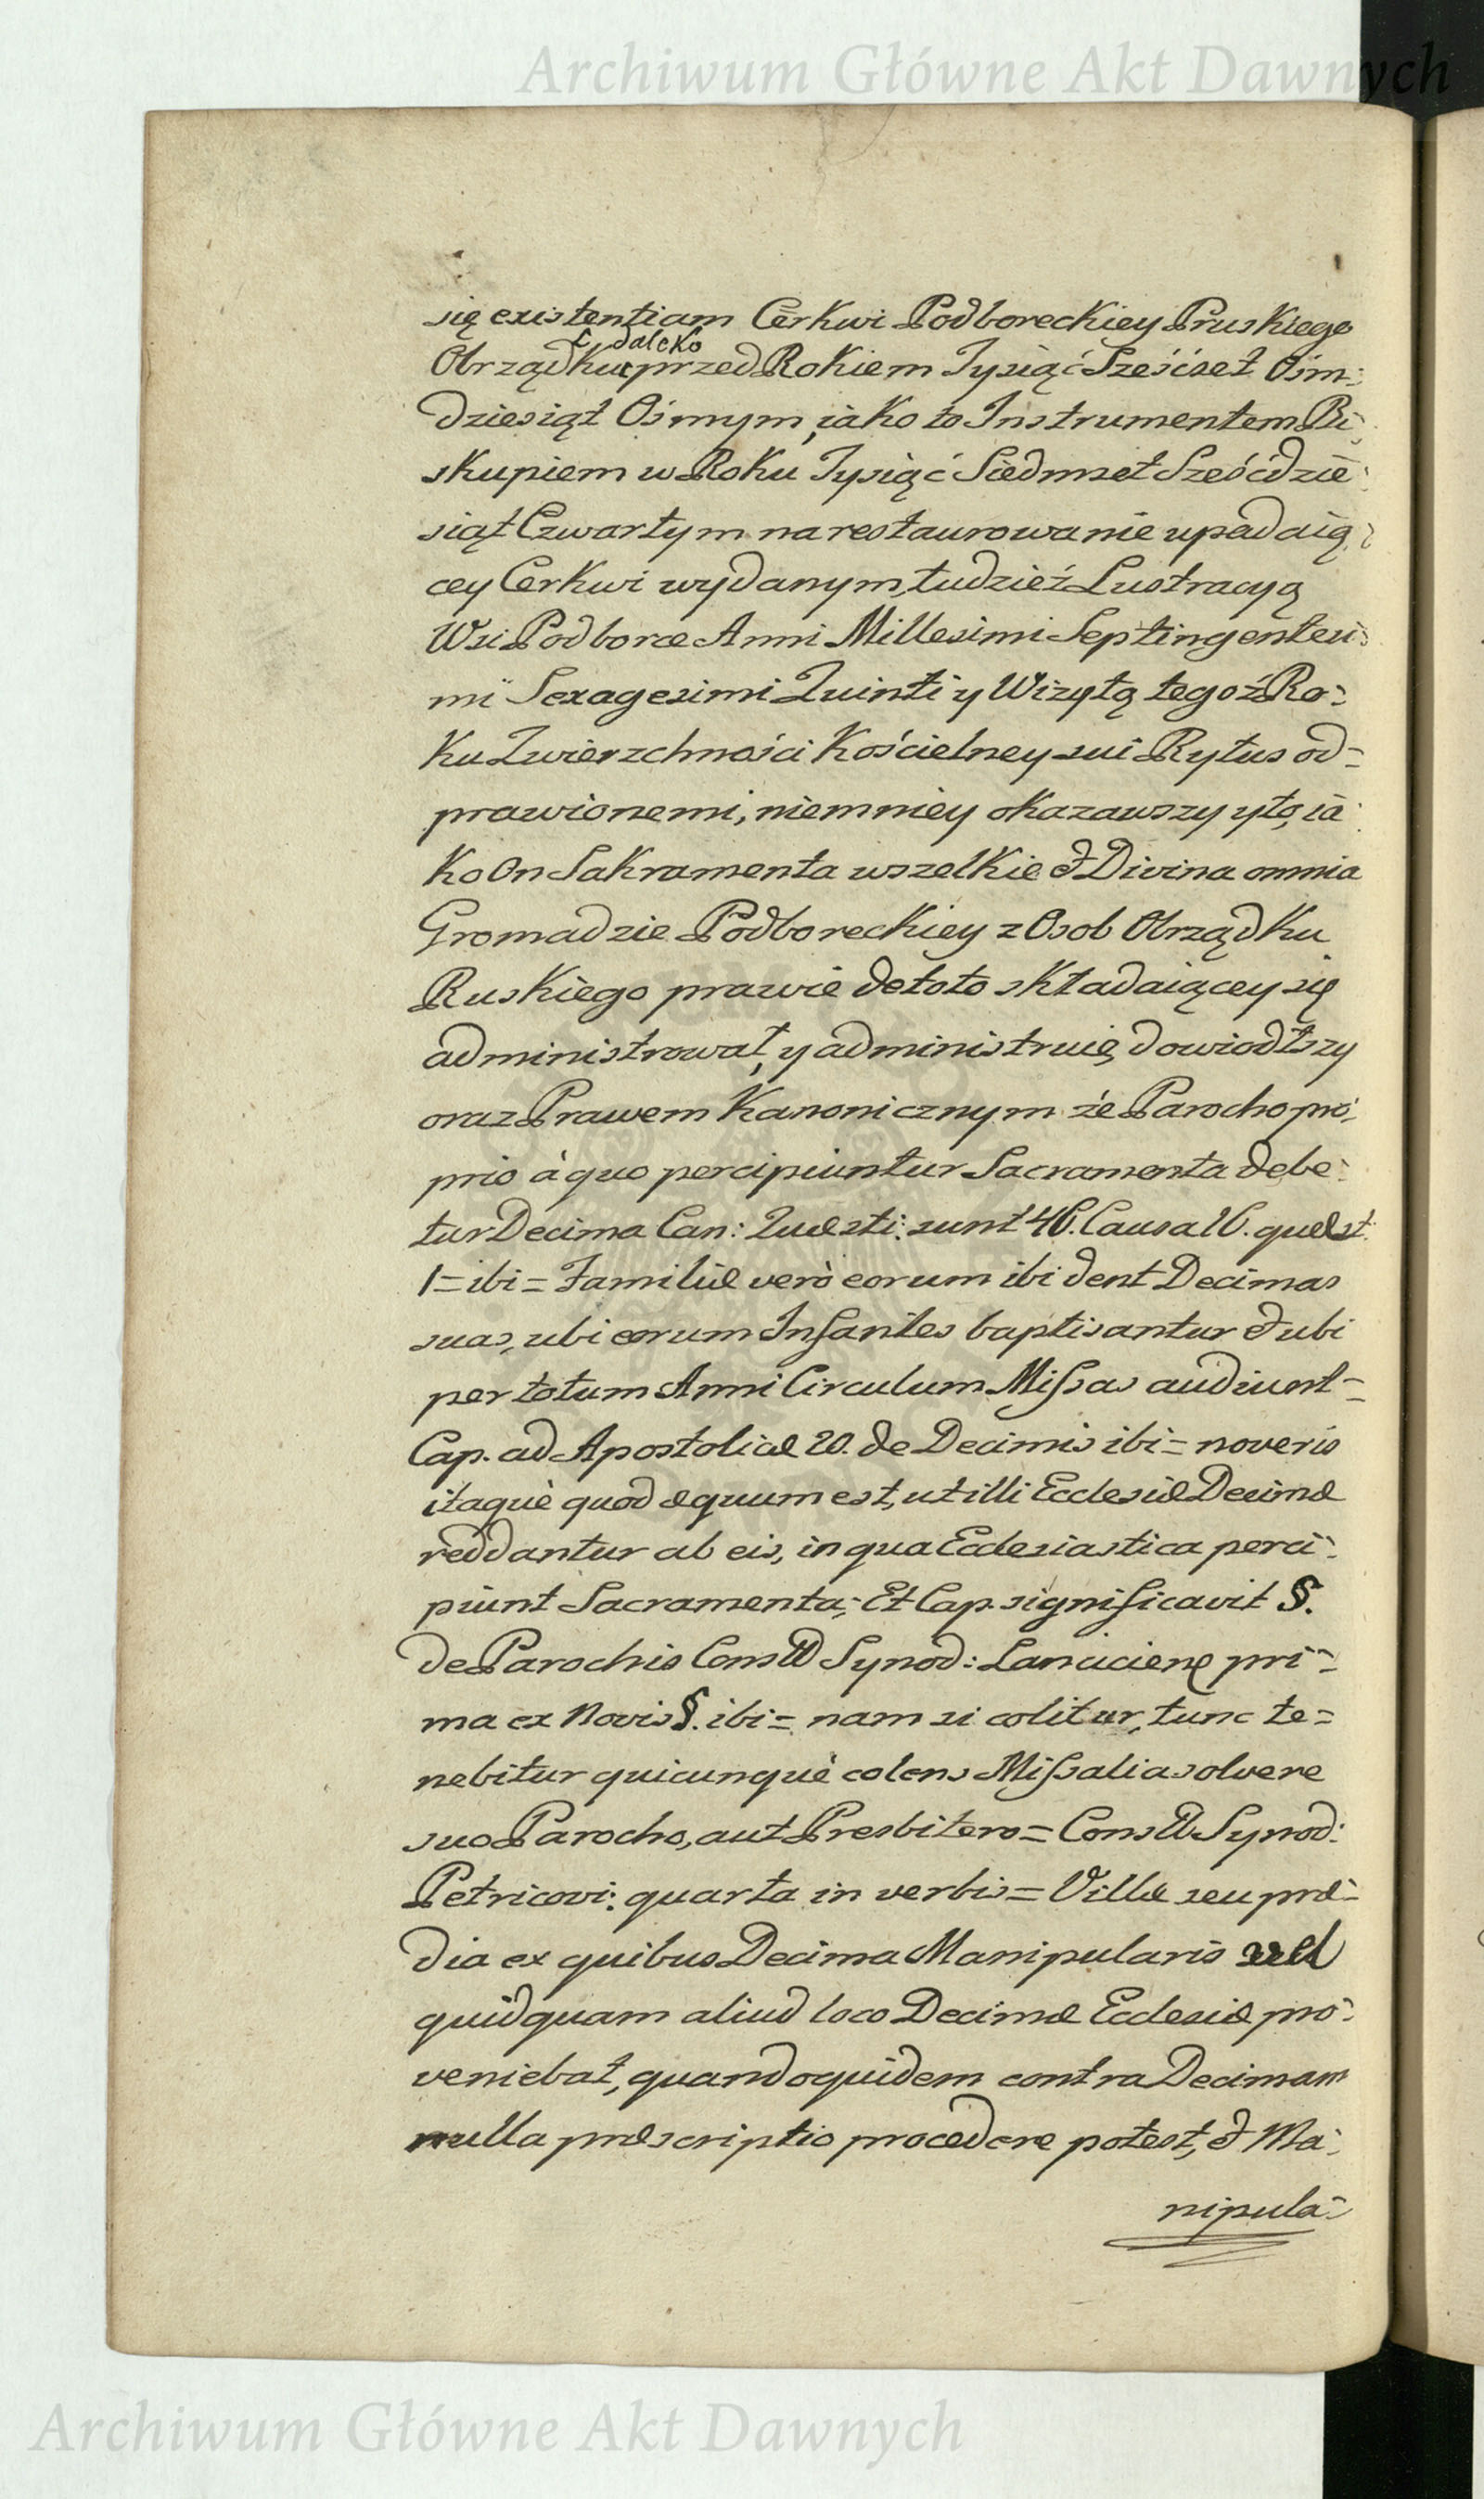 Archiwum Główne Akt Dawnych
się existentiam Cerkwi Podboreckiey Pruskiego
daleko
Obrządku przed Rokiem Tysiąć Sześćset Ośm:
dziesiąt Ośmym, iako to Instrumentem Bi:
skupiem w Roku Tysiąć Siedmset Sześćdzie:
siąt Czwartym na restaurowanie upadaią:
cey Cerkwi wydanym, tudzież Lustracyą
Wsi Podborce Anni Millesimi Septingentesi:
mi Sexagesimi Quinti y Wizytą tegoż Ro:
ku Zwierzchności Kościelney sui Rytus od=
prawionemi, niemniéy okazawszy y to, ia:
ko On Sakramenta wszelkie & Divina omnia
Gromadzie Podboreckiey z Osob Obrządku
Ruskiego prawie de toto składaiącey się
administrował, y administruie, dowiodłszy
oraz Prawem Kanonicznym że Parocho pro:
prio à quo percipiuntur Sacramenta debe:
tur Decima Can: Quæsti: sunt 46. Causa 16. quæst:
1= ibi= Familiæ verò eorum ibi dent Decimas
suas, ubi eorum Infantes baptisantur & ubi
per totum Anni Circulum Missas audiunt=
Cap. ad Apostolicæ 20. de Decimis ibi= noveris
itaquè quod æquum est, ut illi Ecclesiæ Decimæ
reddantur ab eis, in qua Ecclesiastica perci:
piunt Sacramenta; Et Cap. significavit §.
de Parochis Synod: Lancicien pri:
ma ex Novis §. ibi= nam si colitur, tunc te=
nebitur quicunquè colens Missalia solvere
suo Parocho, aut Presbitero= Synod:
Petricovi: quarta in verbis= Villæ seu præ=
dia ex quibus Decima Manipularis vel
quidquam aliud loco Decimæ Ecclesiæ pro:
veniebat, quandoquidem contra Decimam
nulla præscriptio procedere potest, & Ma:
nipula:
Archiwum Główne Akt Dawnych